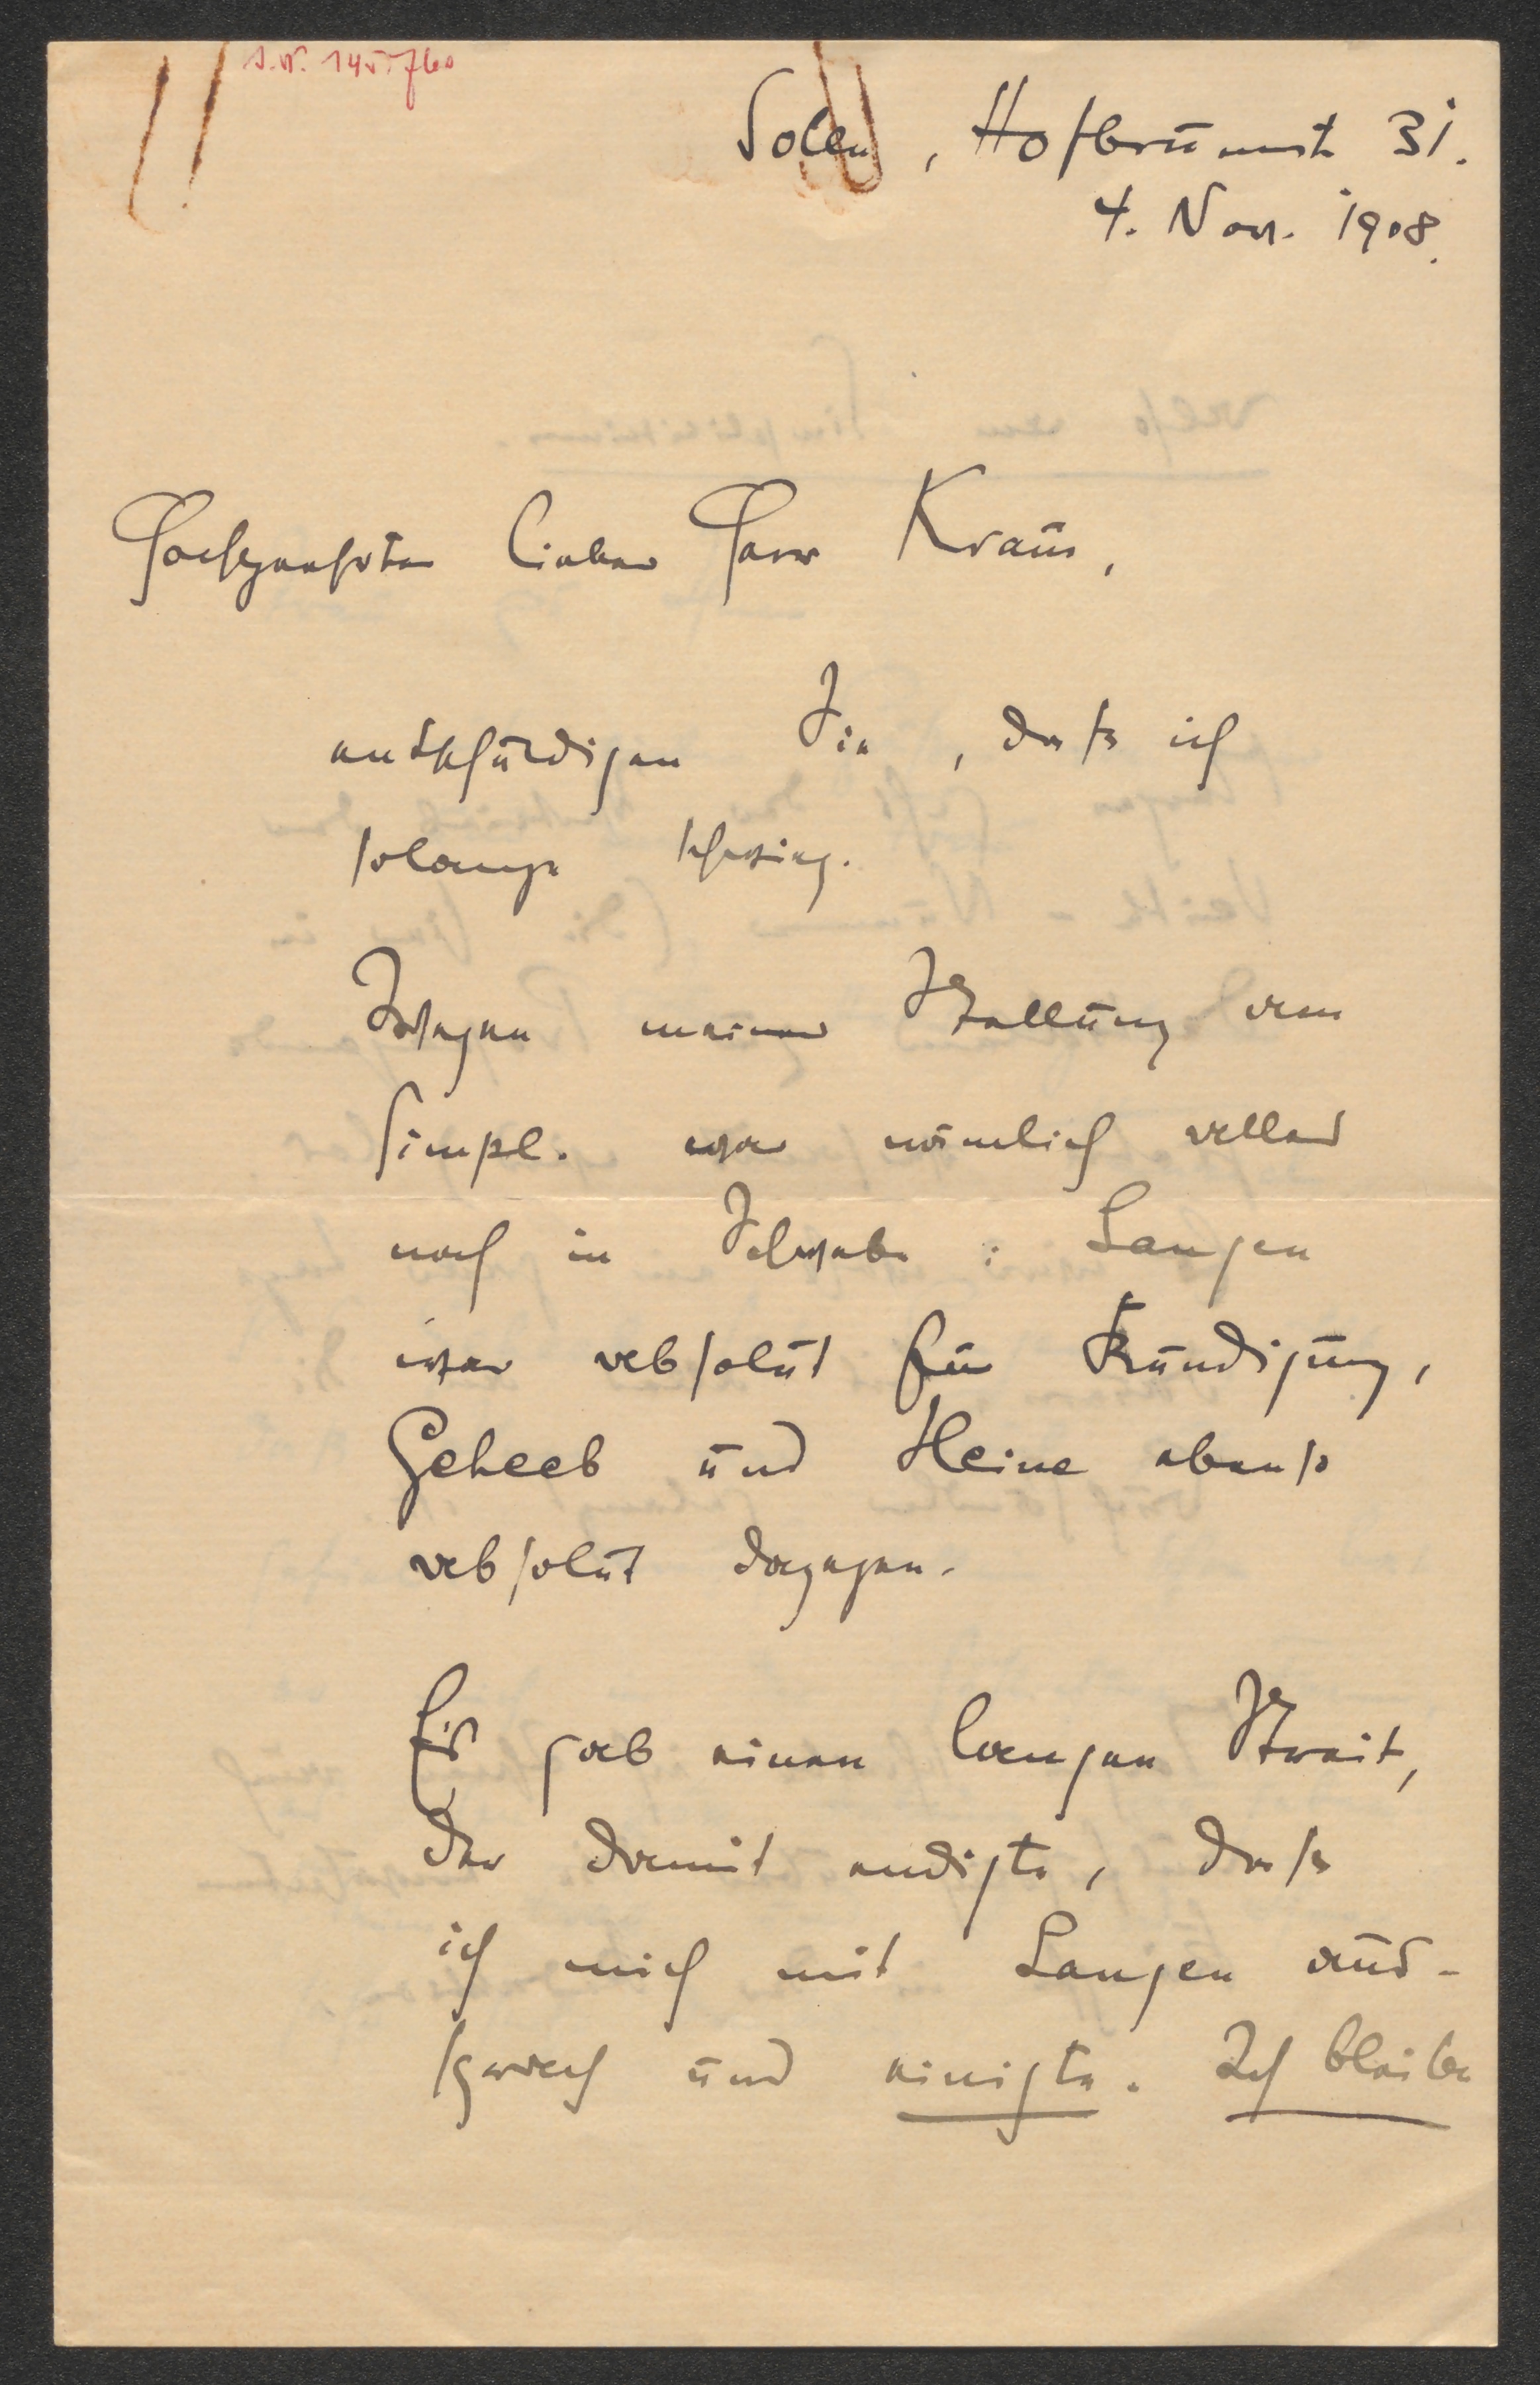 I.N. 145.760
Solln, Hofbrunnstr 31.
4. Nov. 1908.
Hochgeehrter lieber Herr Kraus,
entschuldigen Sie, dass ich
solange schwieg.
Wegen meiner Stellung am
Simpl. war nämlich alles
noch in Schwebe: Langen
war absolut für Kündigung,
Geheeb und Heine ebenso
absolut dagegen.
Es gab einen langen Streit,
der damit endigte, dass
ich mich mit Langen aus-
sprach und einigte. Ich bleibe